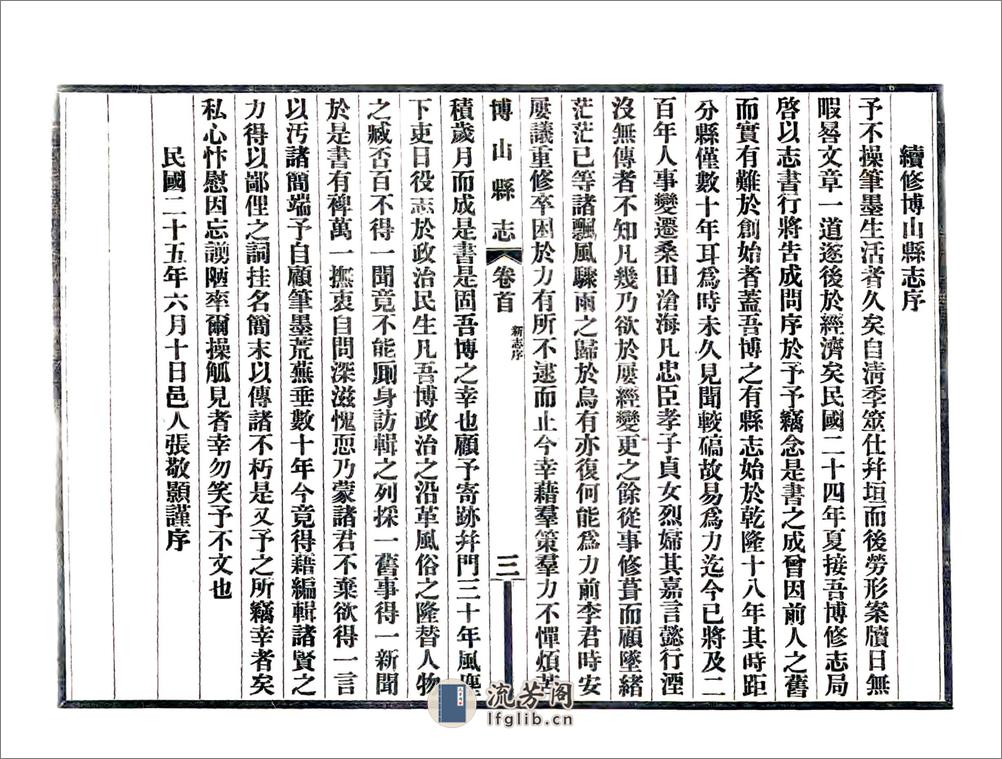 續修博山縣志序
予不操筆墨生活者久矣自淸季筮仕幷垣而後勞形案牘日無
暇晷文章一道遂後於經濟矣民國二十四年夏接吾博修志局
啓以志書行將告成問序於予予竊念是書之成曾因前人之舊
而實有難於創始者蓋吾博之有縣志始於乾隆十八年其時距
分縣僅數十年耳爲時未久見聞較碻故易爲力迄今已將及二
百年人事變遷桑田滄海凡忠臣孝子貞女烈婦其嘉言懿行湮
沒無傳者不知凡幾乃欲於屢經變更之餘從事修葺而顧墜緒
茫茫已等諸飄風驟雨之歸於烏有亦復何能爲力前李君時安
屢議重修卒困於力有所不逮而止今幸藉羣策羣力不憚煩苦
博山縣志 卷首 新志序 三
積歲月而成是書是固吾博之幸也顧予寄跡幷門三十年風塵
下吏日役志於政治民生凡吾博政治之沿革風俗之隆替人物
之臧否百不得一聞竟不能厠身訪輯之列採一舊事得一新聞
於是書有裨萬一撫衷自問深滋愧恧乃蒙諸君不棄欲得一言
以汚諸簡端予自顧筆墨荒蕪垂數十年今竟得藉編輯諸賢之
力得以鄙俚之詞挂名簡末以傳諸不朽是又予之所竊幸者矣
私心忭慰因忘謭陋率爾操觚見者幸勿笑予不文也
民國二十五年六月十日邑人張敬顥謹序
流芳阁
lfglib.cn